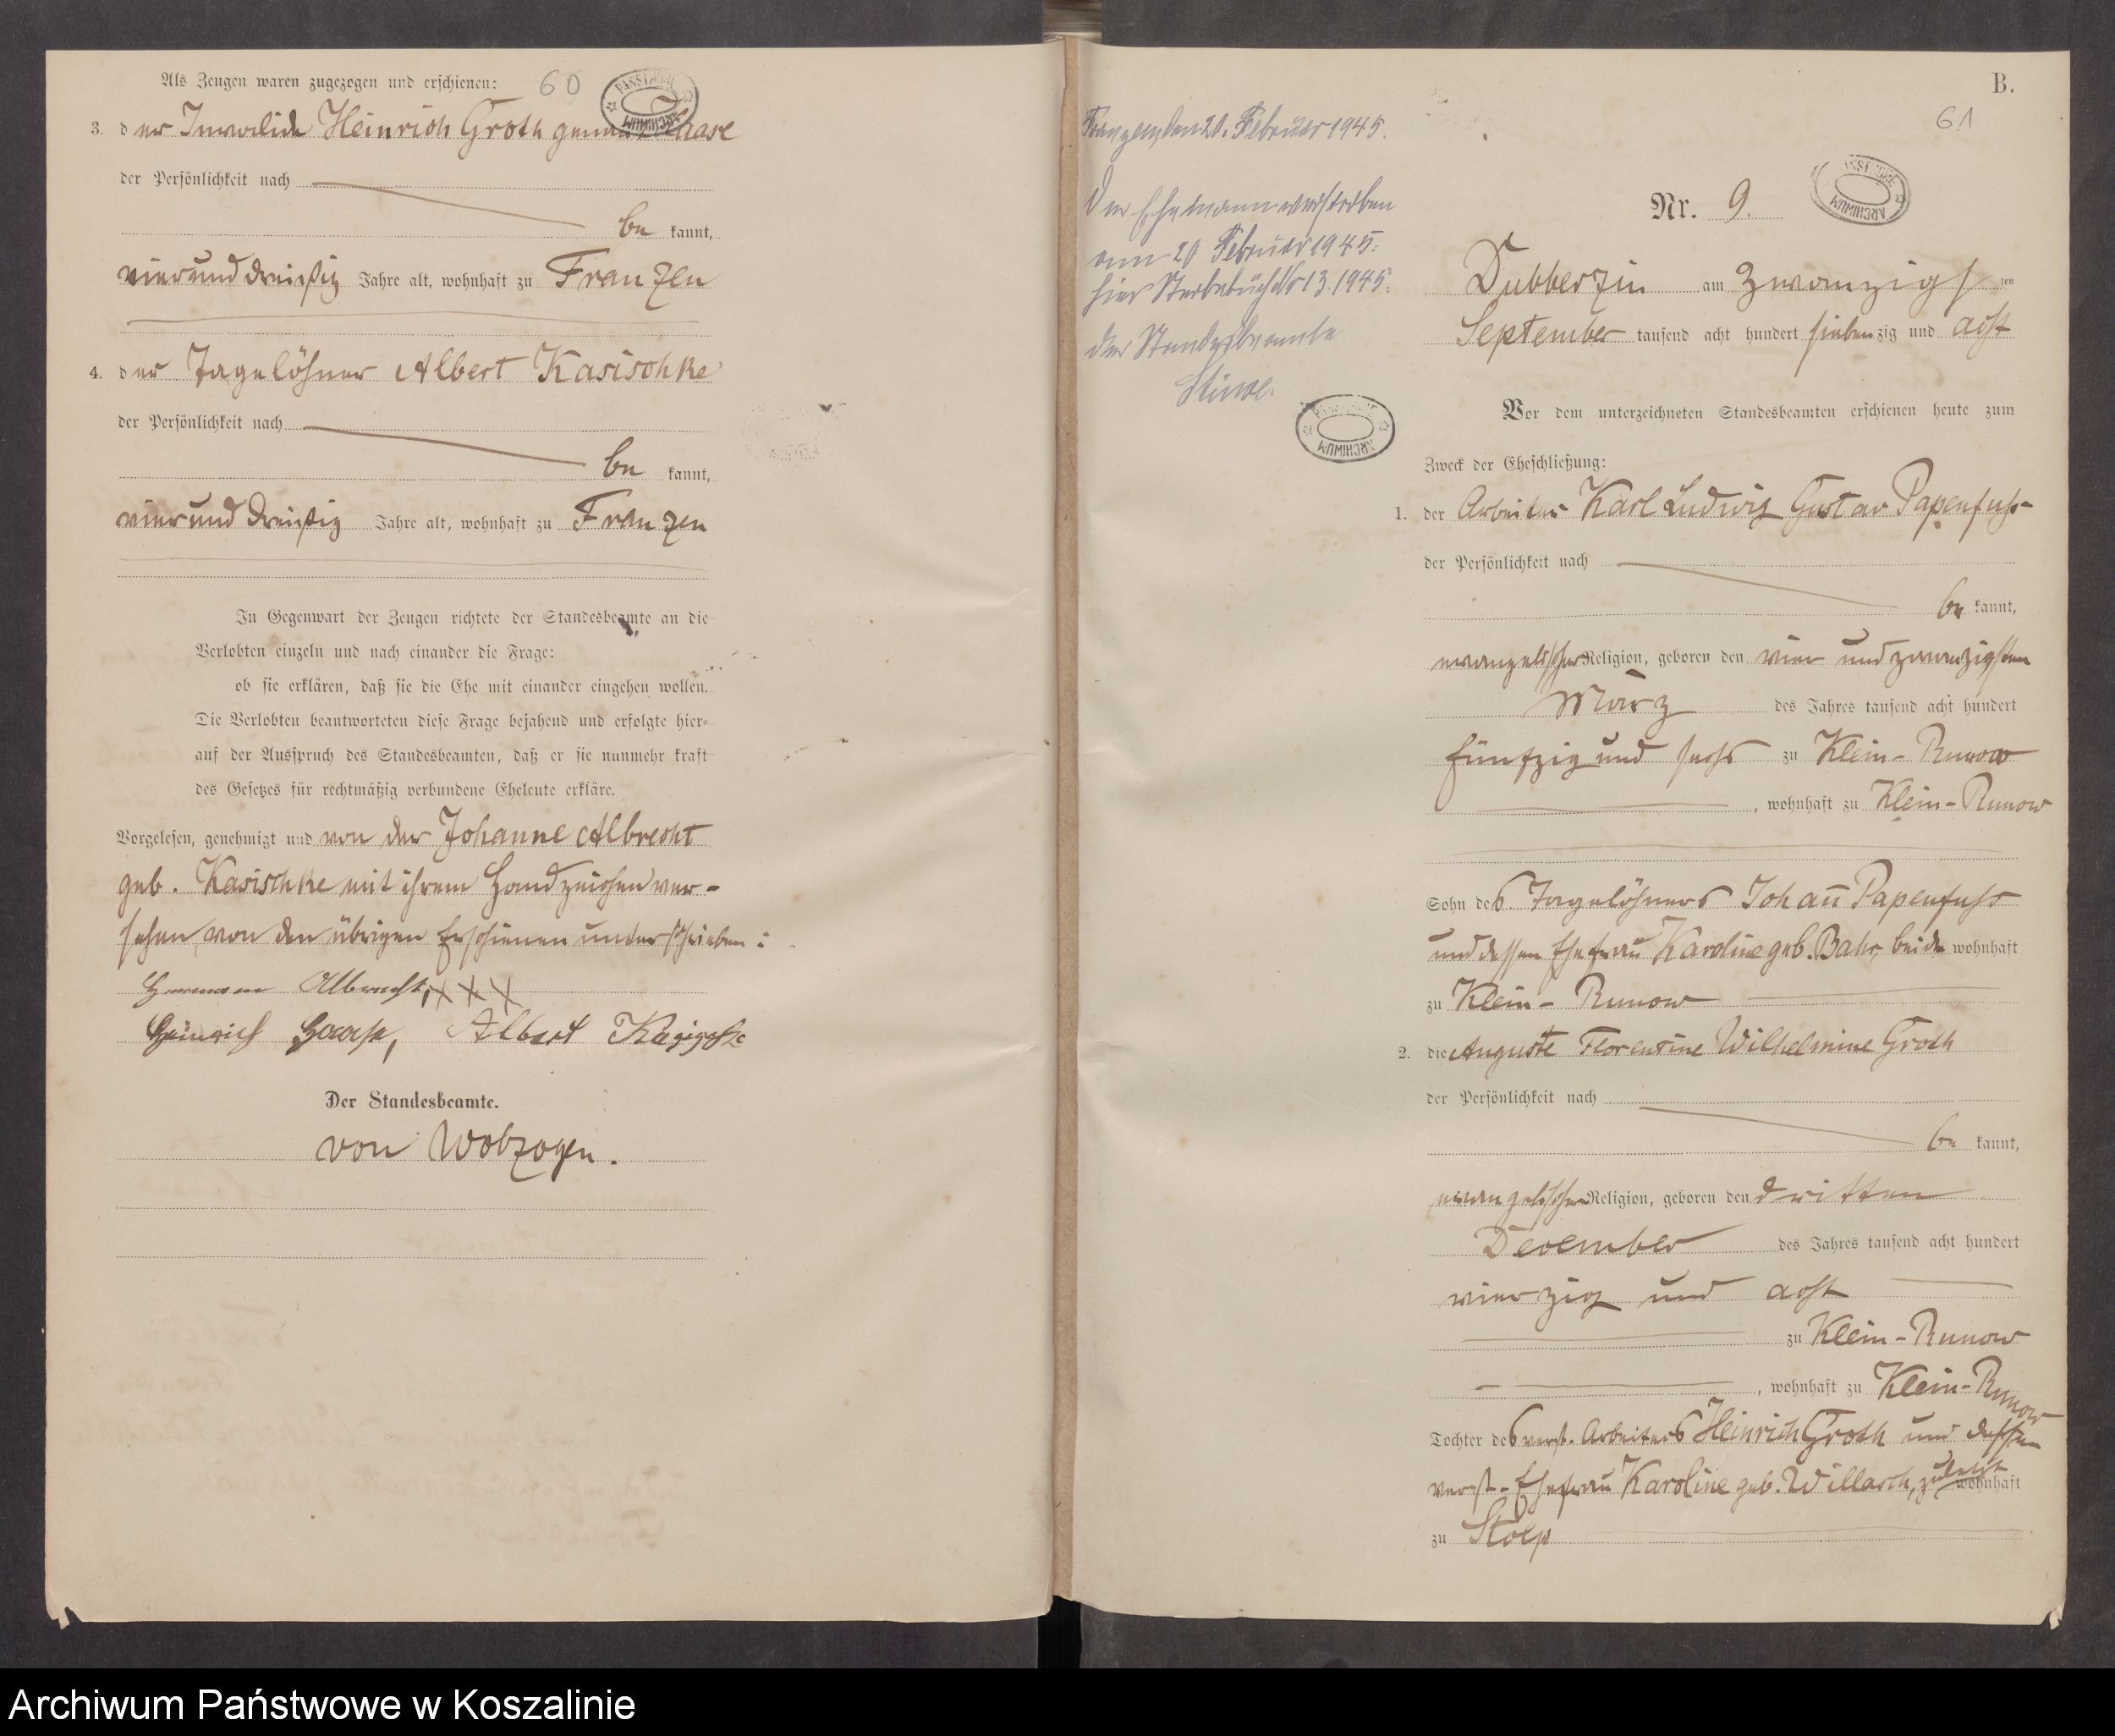 Als Zeugen waren zugezogen und erschienen:
60
3. der Invalide Heinrich Groth genannt Haase
der Persönlichkeit nach
be kannt,
vierunddreißig Jahre alt, wohnhaft zu Franzen
4. der Tagelöhner Albert Kasischke
der Persönlichkeit nach
be kannt,
vierunddreißig Jahre alt, wohnhaft zu Franzen
In Gegenwart der Zeugen richtete der Standesbeamte an die
Verlobten einzeln und nach einander die Frage:
ob sie erklären, daß sie die Ehe mit einander eingehen wollen.
Die Verlobten beantworteten diese Frage bejahend und erfolgte hier-
auf der Ausspruch des Standesbeamten, daß er sie nunmehr kraft
des Gesetzes für rechtmäßig verbundene Eheleute erkläre.
Vorgelesen, genehmigt und von der Johanne Albrecht
geb. Kasischke mit ihrem Handzeichen ver-
sehen, von den übrigen Erschienen unterschrieben:
Hermann Albrecht, XXX
Heinrich Haase, Albert Kasischke
Der Standesbeamte.
von Wobzogen.
B.
61
Franzen, den 20. Februar 1945.
Der Ehemann verstorben
am 20 Februar 1945.
hier Sterbebuch Nr 13. 1945.
Der Standesbeamte
Nr. 9.
Dubberzin am Zwanzigsten
September tausend acht hundert siebenzig und acht
Vor dem unterzeichneten Standesbeamten erschienen heute zum
Zweck der Eheschließung:
1. der Arbeiter Karl Ludwig Gustav Papenfuss
der Persönlichkeit nach
be kannt,
evangelischer Religion, geboren den vier und zwanzigsten
März des Jahres tausend acht hundert
fünfzig und sechs zu Klein-Runow
, wohnhaft zu Klein-Runow
Sohn des Tagelöhners Johann Papenfuss
und dessen Ehefrau Karoline geb. Bahr, beide wohnhaft
zu Klein-Runow
2. die Auguste Florentine Wilhelmine Groth
der Persönlichkeit nach
be kannt,
evangelischer Religion, geboren den dritten
December des Jahres tausend acht hundert
vierzig und acht
zu Klein-Runow
, wohnhaft zu Klein-Runow
Tochter des verst. Arbeiters Heinrich Groth und dessen
verst. Ehefrau Karoline geb. Willasch, zuletzt wohnhaft
zu Stolp
ARCHIWUM
Archiwum Państwowe w Koszalinie